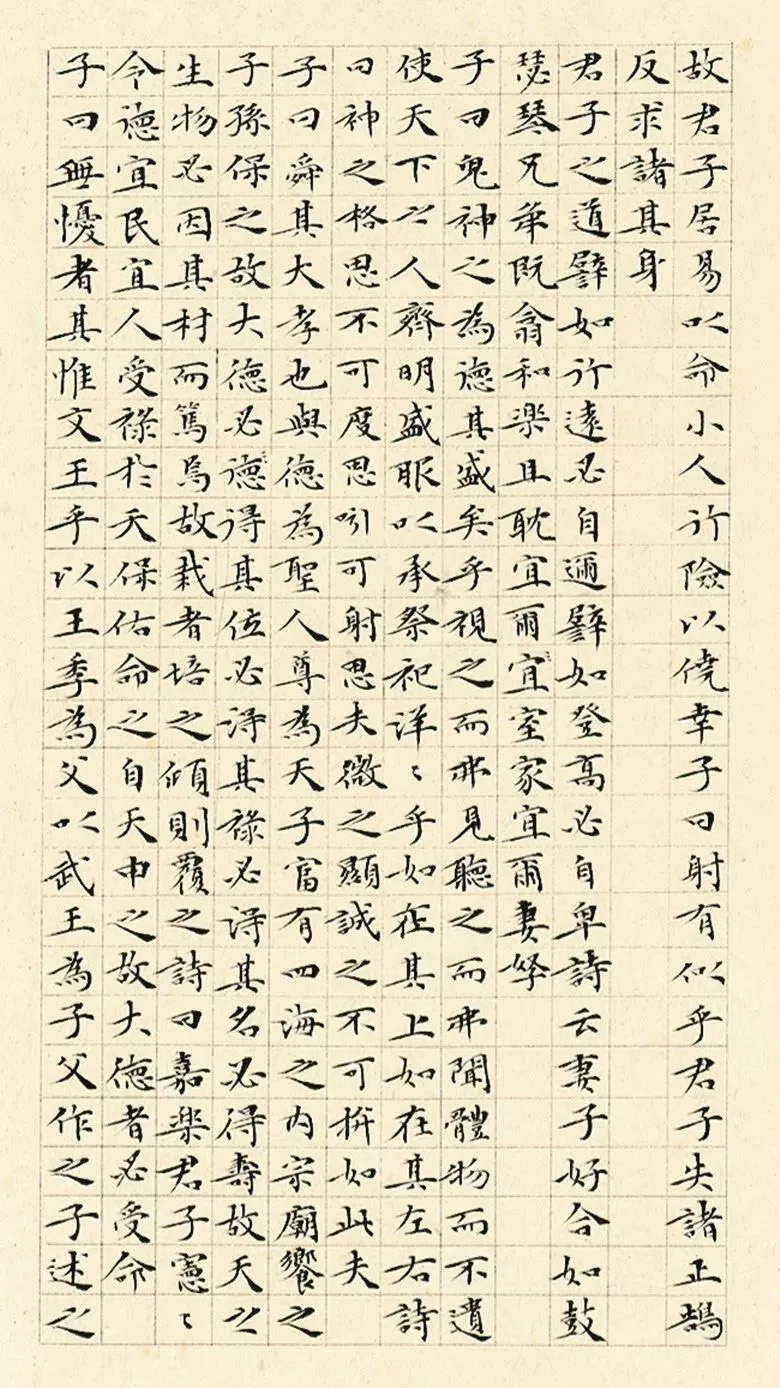 故君子居易以命小人行險以僥幸子曰射有似乎君子失諸正鵠
反求諸其身
君子之道譬如行遠必自邇譬如登高必自卑詩云妻子好合如鼓
瑟琴兄弟既翕和樂且耽宜爾宜室家宜爾妻孥
子曰鬼神之為德其盛矣乎視之而弗見聽之而弗聞體物而不遺
使天下之人齊明盛服以承祭祀洋〻乎如在其上如在其左右詩
曰神之格思不可度思矧可射思夫微之顯誠之不可揜如此夫
子曰舜其大孝也與德為聖人尊為天子富有四海之内宗廟饗之
子孫保之故大德必德得其位必得其祿必得其名必得壽故天之
生物必因其材而篤焉故栽者培之傾則覆之詩曰嘉樂君子憲〻
令德宜民宜人受祿於天保佑命之自天申之故大德者必受命
子曰無懮者其惟文王乎以王季為父以武王為子父作之子述之